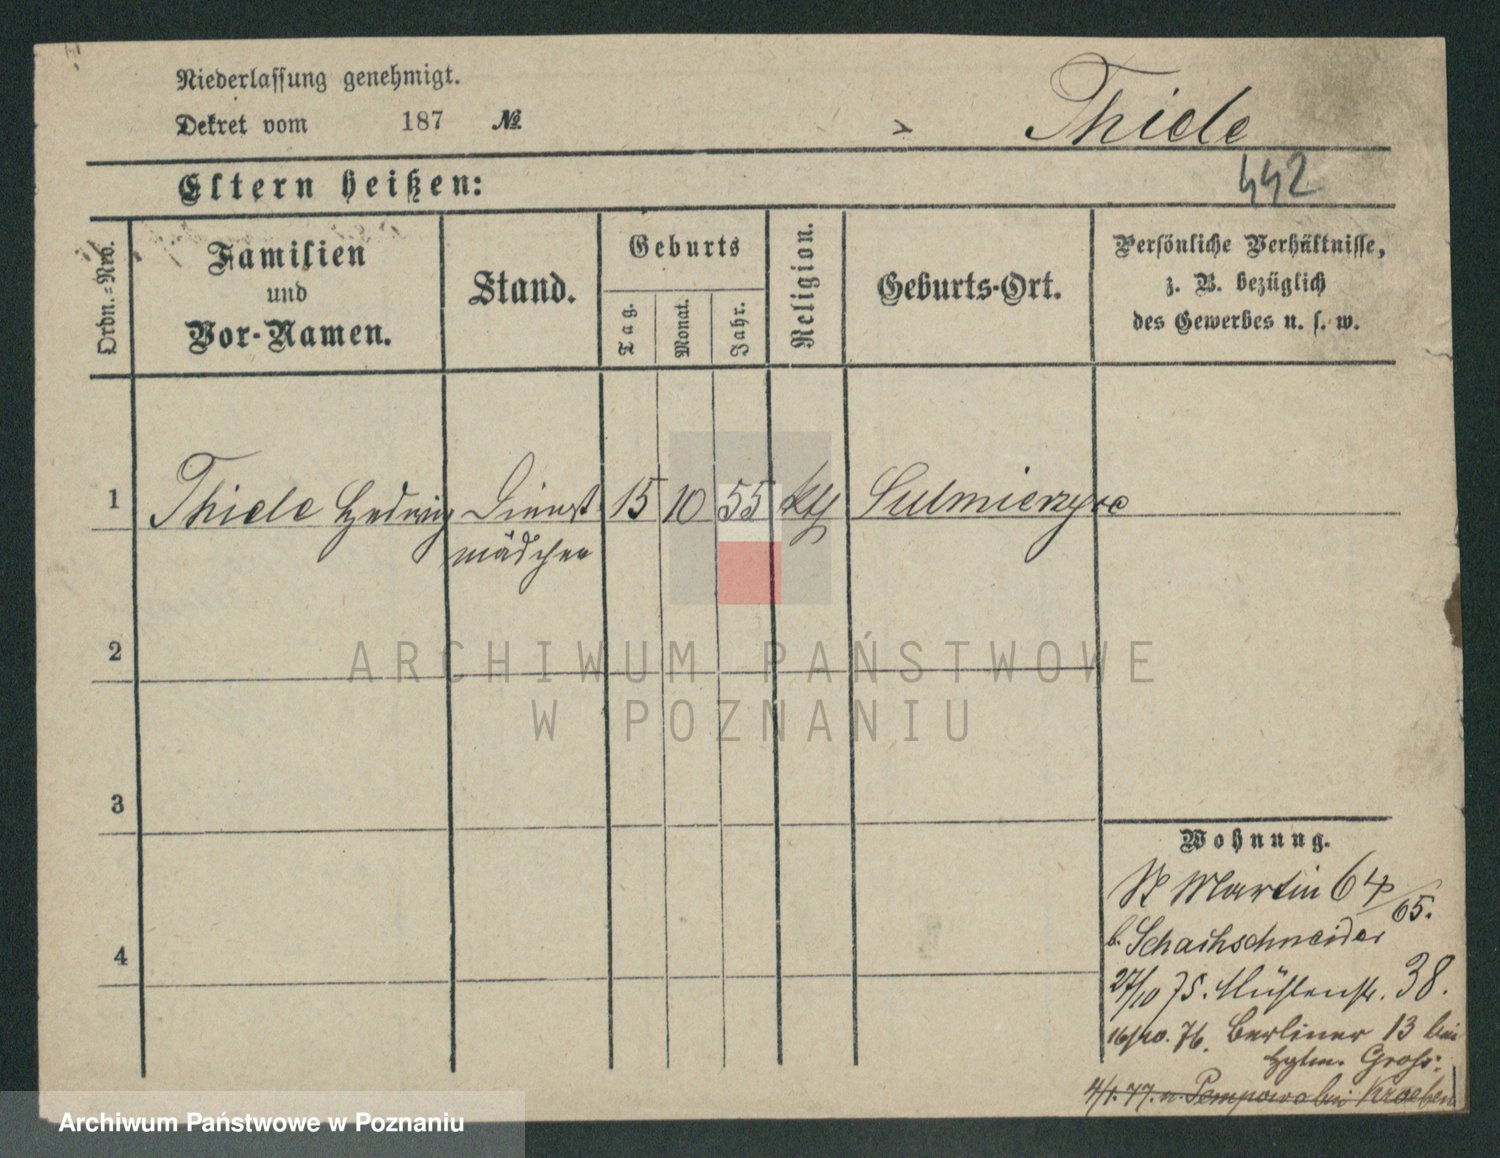 Niederlassung genehmigt.
Dekret vom 187 No
Thiele
442
Eltern heißen:
Ordn.=Nro.
Familien
und
Vor-Namen.
Stand.
Geburts
Tag.
Monat.
Jahr.
Religion.
Geburts-Ort.
Persönliche Verhältnisse,
z. B. bezüglich
des Gewerbes u. s. w.
1 Thiele Hedwig Dienst 15 10 55 kth Sulmierzyce
mädchen
2
3
4
ARCHIWUM PAŃSTWOWE
W POZNANIU
Wohnung.
St Martin 64/65.
b. Schachschneider
27/10 75. Mühlenstr. 38.
16/10. 76. Berliner 13 bei
Gross:
4/1. 77. n. Pempowo bei Kroeben
Archiwum Państwowe w Poznaniu